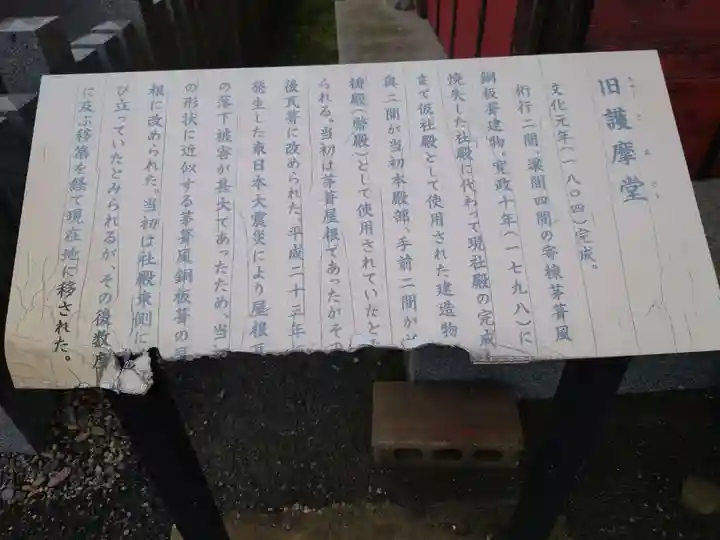 旧護摩堂
きゅうごまどう
文化元年(一八〇四)完成。
桁行二間、梁間四間の寄棟茅葺風
銅板葺建物。寛政十年(一七九八)に
焼失した社殿に代わって現社殿の完成
まで仮社殿として使用された建造物
奥二間が当初本殿部、手前二間が
拝殿(幣殿)として使用されていたと
られる。当初は茅葺屋根であったがその
後瓦葺に改められた。平成二十三年
発生した東日本大震災により屋根瓦
の落下被害が甚大であったため、当
の形状に近似する茅葺風銅板葺の
根に改められた。当初は社殿東側に
び立っていたとみられるが、その後数度
に及ぶ移築を経て現在地に移された。